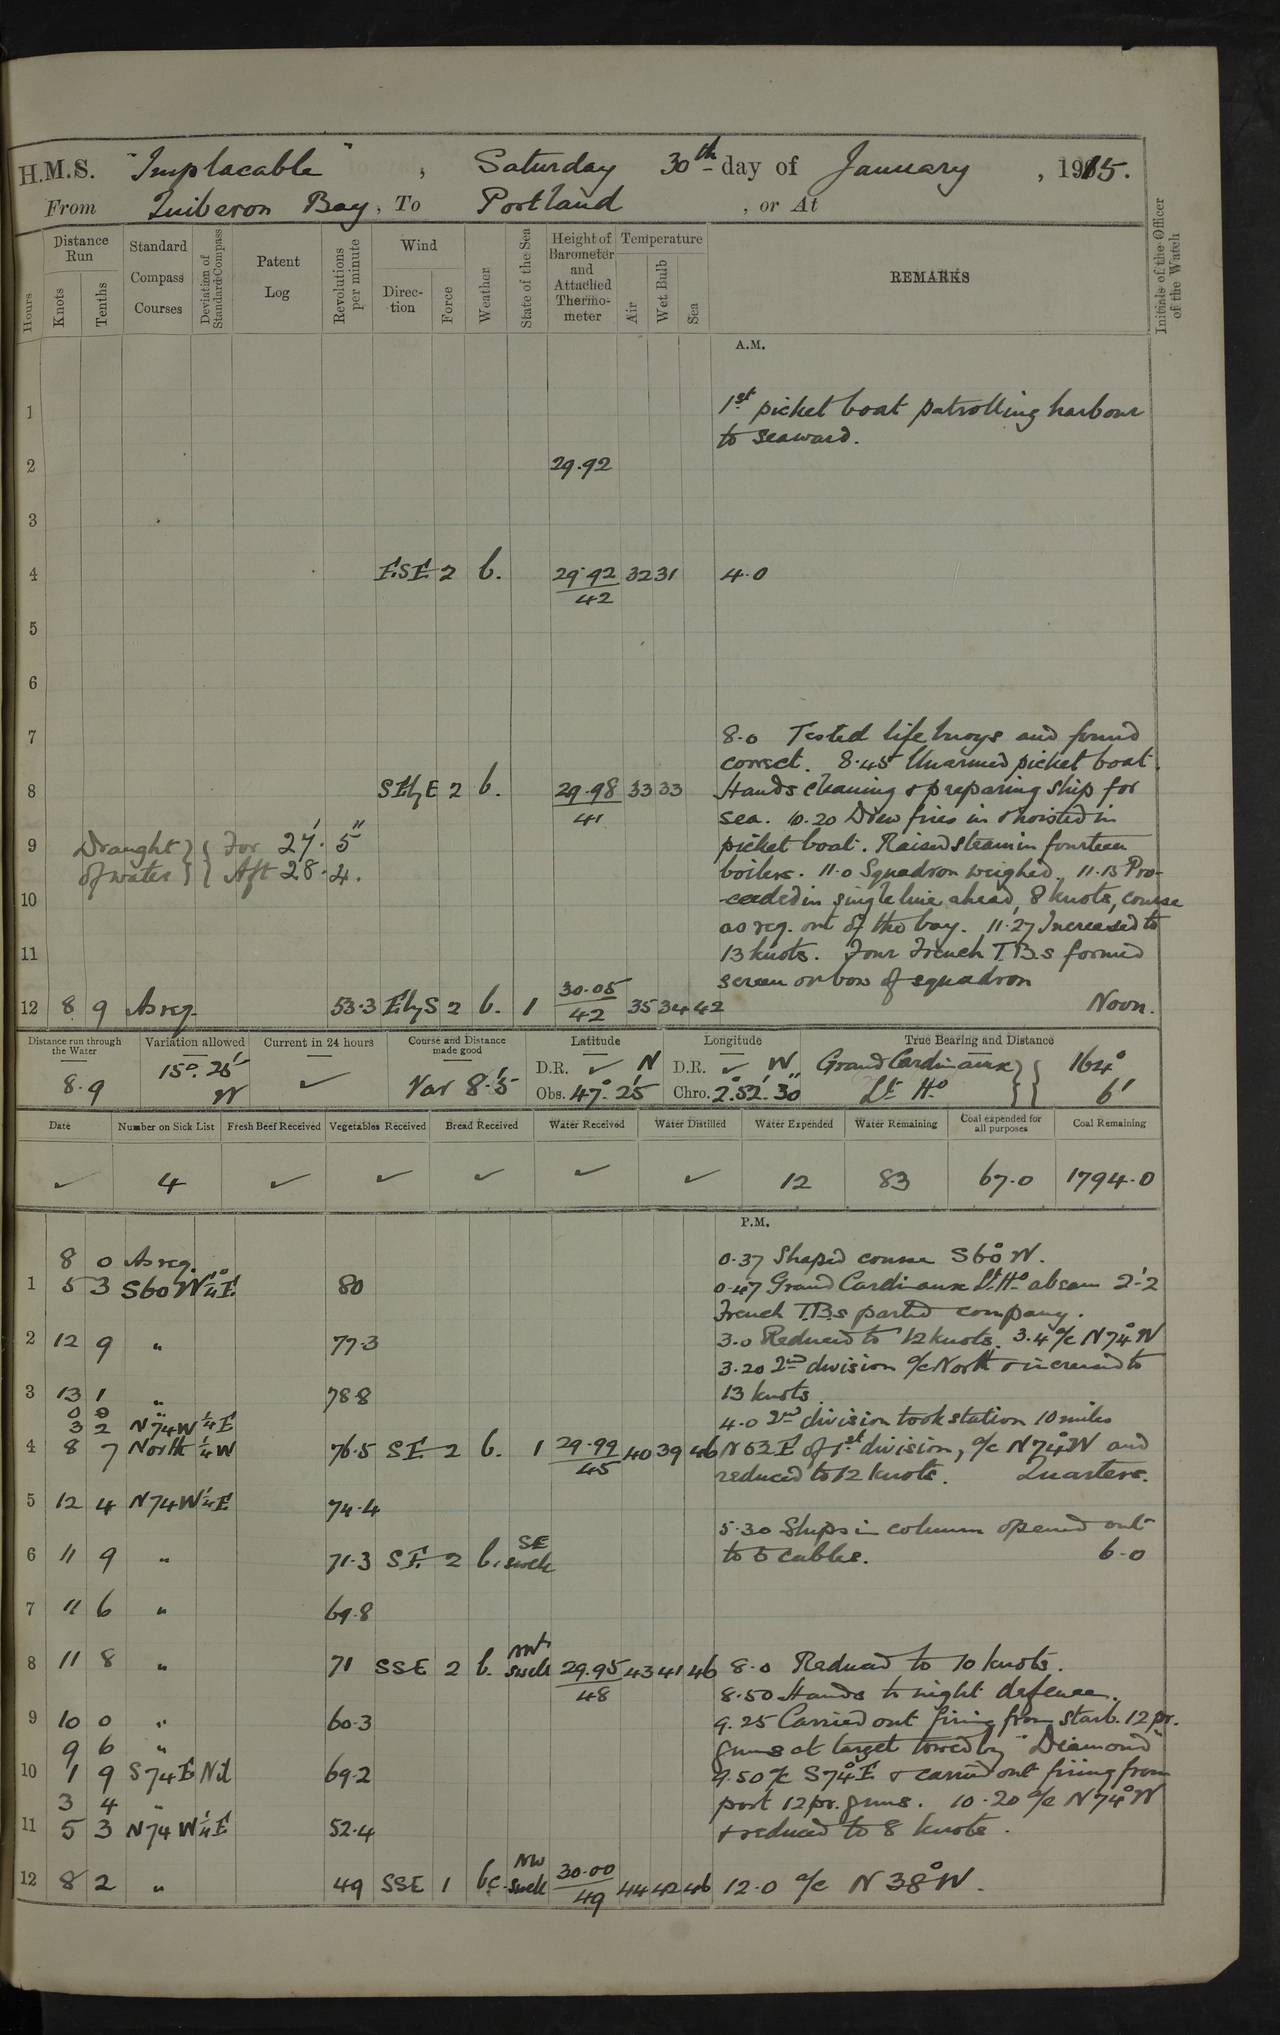 H.M.S. "Implacable", Saturday 30th day of January, 1915.
From Quiberon Bay, To Portland, or At
Hours
Distance Run
Knots
Tenths
Standard Compass Courses
Deviation of Standard Compass
Patent Log
Revolutions per minute
Wind
Direction
Force
Weather
State of the Sea
Height of Barometer and Attached Thermometer
Temperature
Air
Wet Bulb
Sea
REMARKS
Initials of the Officer of the Watch
A.M.
1 1st picket boat patrolling harbour
to seaward.
2 29.92
3
4 E.S.E. 2 b. 29.92 32 31 4.0
42
5
6
7 8.0 Tested life buoys and found
correct. 8.45 Unarmed picket boat.
8 SEbyE 2 b. 29.98 33 33 Hands cleaning & preparing ship for
41 sea. 10.20 Drew fires in & hoisted in
9 Draught } { For 27' . 5" picket boat. Raised steam in fourteen
of water } { Aft 28 . 4. boilers. 11.0 Squadron weighed. 11.15 Pro-
10 -ceeded in single line ahead, 8 knots, course
as req. out of the bay. 11.27 Increased to
11 13 knots. Four French T.B.s formed
screen on bow of squadron
12 8 9 As req. 53.3 EbyS 2 b. 1 30.05 35 34 42 Noon.
42
Distance run through the Water
Variation allowed
Current in 24 hours
Course and Distance made good
Latitude
Longitude
True Bearing and Distance
8.9 15°.25' W ✓ Var 8.'5
D.R. ✓ N D.R. ✓ W Grand Cardinaux } { 164°
Obs. 47°.25' Chro. 2°.52'.30" Lt. Ho. } { 6'
Date
Number on Sick List
Fresh Beef Received
Vegetables Received
Bread Received
Water Received
Water Distilled
Water Expended
Water Remaining
Coal expended for all purposes
Coal Remaining
✓ 4 ✓ ✓ ✓ ✓ ✓ 12 83 67.0 1794.0
P.M.
8 0 As req. 0.37 Shaped course S60°W.
1 5 3 S60W ¼°E 80 0.47 Grand Cardinaux Lt. Ho. abeam 2.'2
French T.B.s parted company.
2 12 9 " 77.3 3.0 Reduced to 12 knots. 3.4 a/c N74°W
3.20 2nd division a/c North & increased to
3 13 1 " 78.8 13 knots
0 8 "
3 2 N74W ¼E 4.0 2nd division took station 10 miles
4 8 7 North ¼W 76.5 SE 2 b. 1 29.92 40 39 46 N52E of 1st division, a/c N74°W and
45 reduced to 12 knots. Quarters.
5 12 4 N74W ¼E 74.4
5.30 Ships in column opened out
6 11 9 " 71.3 SE 2 b. SE swell to 5 cables. 6.0
7 11 6 " 69.8
8 11 8 " 71 SSE 2 b. swell 29.95 43 41 46 8.0 Reduced to 10 knots.
48 8.50 Hands to night defence.
9 10 0 " 60.3 9.25 Carried out firing from starb. 12 pr.
9 6 " guns at target towed by "Diamond"
10 1 9 S74E Nil 69.2 9.50 a/c S74°E & carried out firing from
3 4 " port 12 pr. guns. 10.20 a/c N74°W
11 5 3 N74W ¼E 52.4 & reduced to 8 knots.
12 8 2 " 49 SSE 1 bc. NW swell 30.00 44 42 46 12.0 a/c N38°W.
49